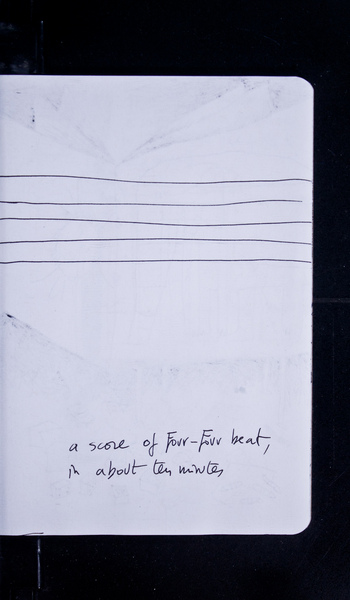 a score of Four-Four beat,
in about ten minutes